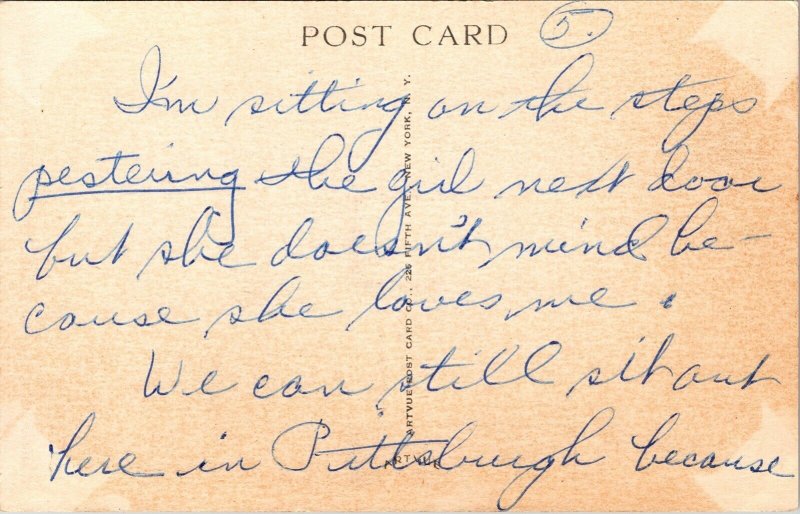 POST CARD
5.
I'm sitting on the steps
pestering the girl next door
but she doesn't mind be-
cause she loves me.
We can still sit out
here in Pittsburgh because
ARTVUE POST CARD CO., 225 FIFTH AVE., NEW YORK, N. Y.
ARTVUE